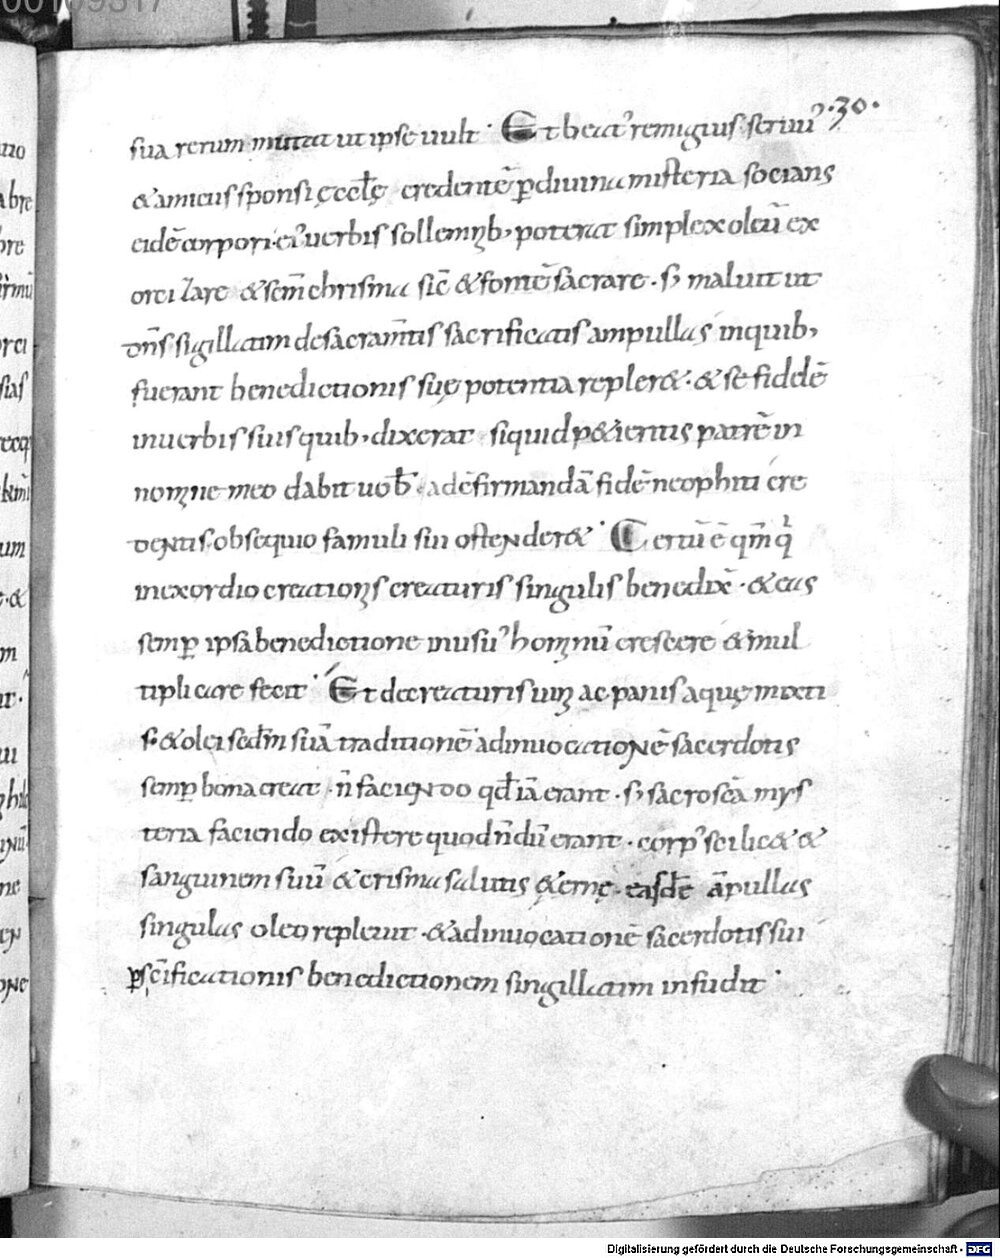 00109317
.30.
sua rerum mutat ut ipse uult · Et beat᾽ remigius seruu᾽
& amicus sponsi ęccl̄ę credentē ꝑ diuina misteria socians
eidē corpori ei᾽ uerbis sollemnib; poterat simplex oleū ex
orcizare & sc̄m chrisma sic̄ & fontē sacrare · s; maluit ut
dn̄s sigillatim de sacram̄tis sacrificatis ampullas in quib;
fuerant benedictionis suę potentia repler& · & se fidelē
in uerbis suis quib; dixerat siquid p&ieritis patrē in
nomine meo dabit uob̄ · ad c̄firmandā fidē neophiti cre
dentis obsequio famuli sui ostender& · Certū ē qm̄ q̇
in exordio creationis creaturis singulis benedix̄ · & eas
semꝑ ipsa benedictione in usu᾽ hominū crescere & mul
tiplicare fecit · Et de creaturis uini ac panis aquę mixti
s · & olei sedm̄ suā traditionē ad inuocationē sacerdotis
semꝑ bona creat · n̄ faciendo qd̄ iā erant · s; sacrosc̄a mys
teria faciendo existere quod n̄dū erant · corp᾽ scilic& &
sanguinem suū & crisma salutis ęternę · easdē āpullas
singulas oleo repleuit · & ad inuocationē sacerdotis sui
ꝑ sc̄ificationis benedictionem singillatim infudit ·
Digitalisierung gefördert durch die Deutsche Forschungsgemeinschaft - DFG